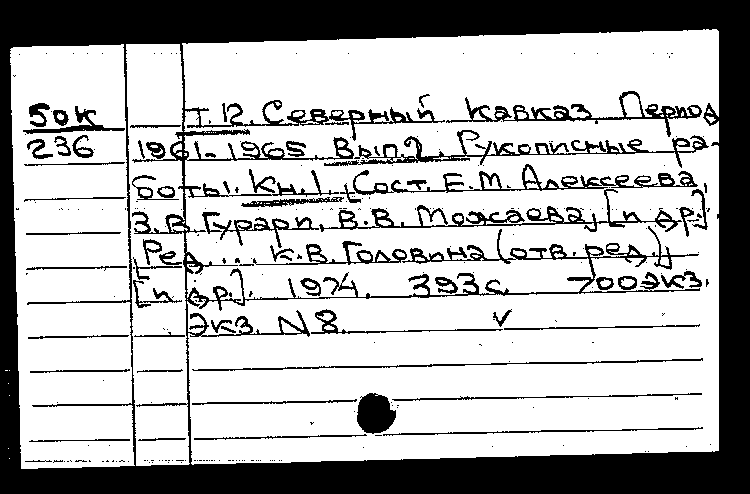 50к Т.12. Северный Кавказ. Период
236 1961-1965. Вып.2. Рукописные ра-
боты. Кн.1. Сост. Е.М. Алексеева,
З.В. Гурари, В.В. Можаева, [и др.].
Ред. ... К.В. Головина (отв. ред.),
[и др.]. 1974. 393с. 700экз.
Экз. N 8. v